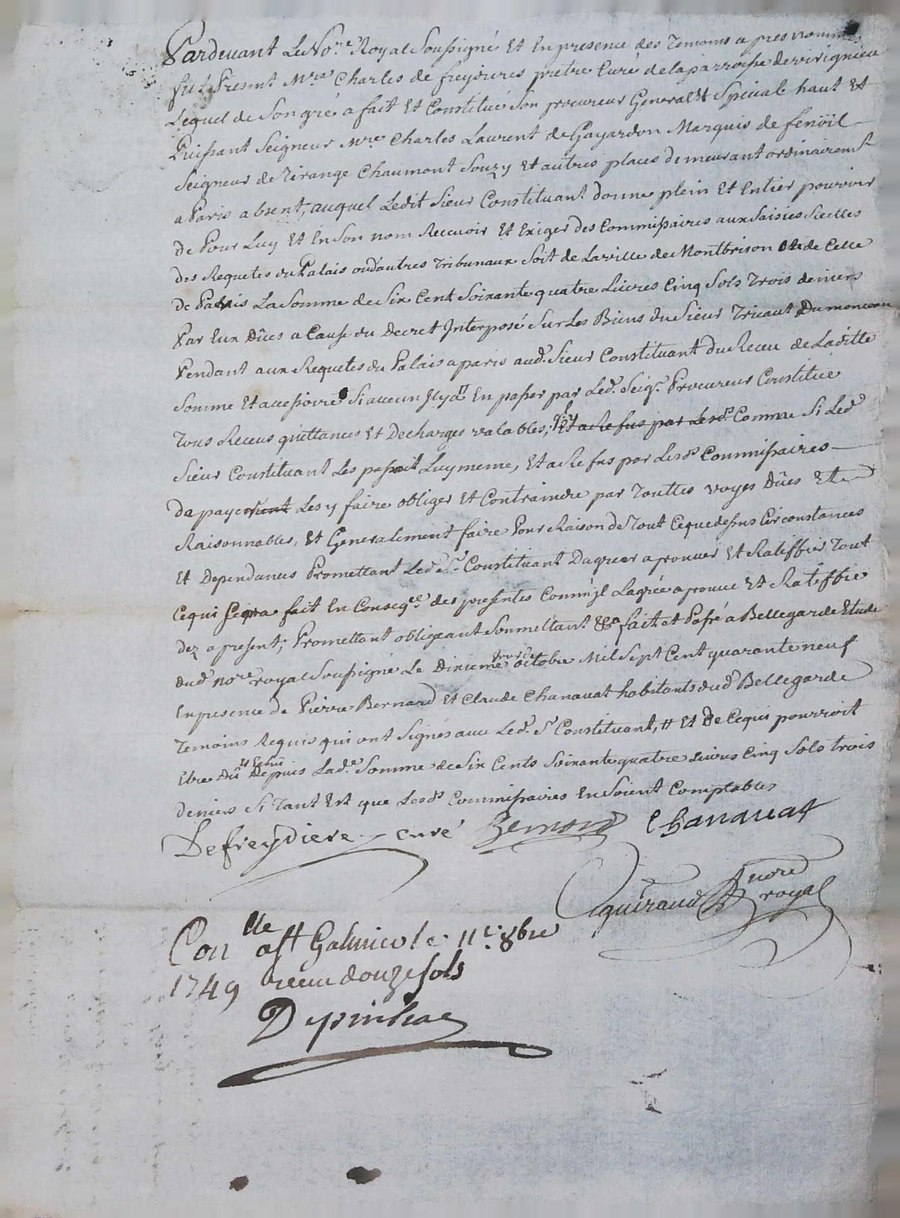 Pardevant Le No.re Royal Soussigné Et En presence des Temoins apres nommé
fut Present M.re Charles de freydieres prêtre Curé de la parroisse de virignieu
Lequel de Son gré a fait Et Constitué Son procureur General Et Special haut Et
Puissant Seigneur M.re Charles Laurent de Gayardon Marquis de fenoïl
Seigneur de Tirange Chaumont Souzy Et autres places demeurant ordinairem.t
a Paris absent, auquel Ledit Sieur Constituant donne plein Et Entier pouvoir
de Pour Luy Et En Son nom Recevoir Et Exiger des Commissaires aux Saisies Réelles
des Requetes du Palais ou d'autres Tribunaux Soit de La ville de Montbrison de Celle
de Paris La Somme de Six Cent Soixante quatre Livres Cinq Sols Trois deniers
Par Eux Dûes a Cause du Decret Interposé Sur Les Biens du Sieur Dumonceau
Pendant aux Requetes du Palais a paris aud. Sieur Constituant du Receu de Laditte
Somme Et accessoire Si aucun Il y a En passer par Led. Seig.r Procureur Constitué
Tous Receus quittances Et Decharges valables, Et a Refus par Lesd. Comme Si Led.
Sieur Constituant Les passoit Luy meme, Et a Refus par Lesd. Commissaires
de payer Les y faire obliger Et Contraindre par Touttes voyes Dûes Et
Raisonnables, Et Generalement faire Pour Raison de Tout Ce que dessus Circonstances
Et Dependances Promettant Led. S.r Constituant Dagreer aprouver Et Ratiffier Tout
Ce qui Sera fait En Conseq.ce des presentes Comme Il Lagrée aprouve Et Ratiffie
dez a present; Promettant obligeant Soumettant &a fait et Passé a Bellegarde Etude
dud. no.re royal Soussigné Le Dixieme Jour de octobre Mil Sept Cent quarante neuf
En presence de Pierre Bernard Et Claude Chanavat habitants dud. Bellegarde
Temoins Requis qui ont Signés avec Led. S.r Constituant, # Et De Ce qui pourroit
Etre dû Et Echu Depuis Lad.e Somme de Six Cents Soixante quatre Livres Cinq Sols trois
deniers Si Tant Est que Lesd. Commissaires En Soient Comptables
Defreydiere curé Bernard Chanavat
guiraud nore royal
Con.lle a St Galmier le 11.e 8bre
1749 receu douze sols